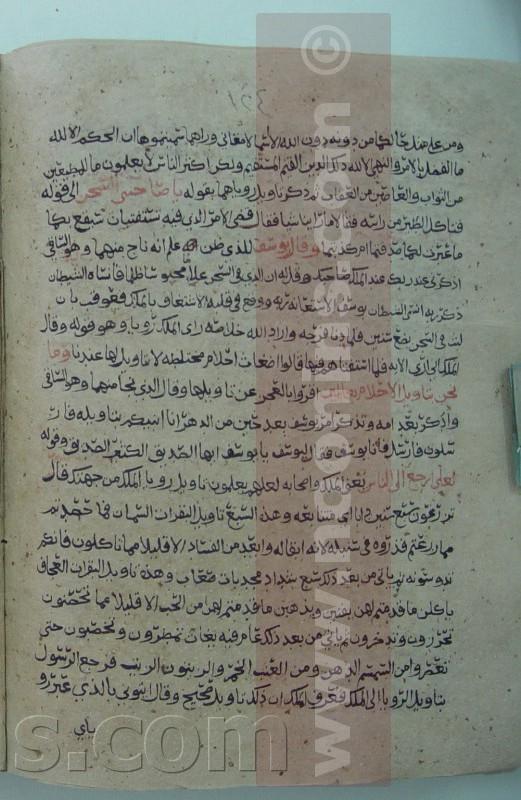 ١٢٤
دونه دون الله الا اسما لا معاني وراها سميتموها ان الحكم الا لله
الا لله ذلك الدين القيم المستقيم ولكن اكثر الناس لا يعلمون ما للمطيعين
من الثواب والعاصين من العقاب ثم ذكر تاويل روياهما بقوله يا صاحبي السجن الى قوله
فتاكل الطير من راسه فقالا ما راينا شيا فقال قضي الامر الذي فيه تستفتيان
وقال يوسف للذي ظن علم انه ناج منهما وهو الساقي
اذكرني عند ربك عند الملك وقل له ان الذي في السجن محبوسا ظلما فانساه الشيطان
ذكر ربه يوسف الاستغاثة بربه ووقع في قلبه الاستغاثة بالملك فعوقب بان
لبث في السجن بضع سنين فلما دنا فرجه واراد الله خلاصه راى الملك رويا وهو قوله وقال
الملك اني ارى الاية فلما استفتاهم فيها قالوا اضغاث احلام مختلطة لا تاويل لها عندنا وما
نحن بتاويل الاحلام بعالمين اقروا بالعجز عن تاويلها وقال الذي نجا منهما وهو الساقي
وادكر بعد امة وتذكر امر يوسف بعد حين من الدهر انا انبيكم بتاويله فارسلون
فارسل فاتا يوسف فقال يوسف يا يوسف ايها الصديق الكثير الصدق وقوله
لعلي ارجع الى الناس يعني الملك واصحابه لعلهم يعلمون تاويل رويا الملك من جهتك قال
تزرعون سبع سنين دابا اي متتابعة وهذا السبع تاويل البقرات السمان فما حصدتم
مما زرعتم فذروه في سنبله لانه ابقا له وابعد من الفساد الا قليلا مما تاكلون فانكم
ثم ياتي من بعد ذلك سبع شداد مجدبات صعاب وهذه تاويل البقرات العجاف
ياكلن ما قدمتم لهن يفنين ويذهبن ما قدمتم لهن من الحب الا قليلا مما تحصنون
وتدخرون ثم ياتي من بعد ذلك عام فيه يغاث يمطرون ويخصبون حتى
يعصروا من السمسم الدهن ومن العنب الخمر والزيتون الزيت فرجع الرسول
بتاويل الرويا الى الملك فعرف الملك ان ذلك تاويل صحيح وقال ايتوني بالذي عبر رو
ياي
s.com
www. ©